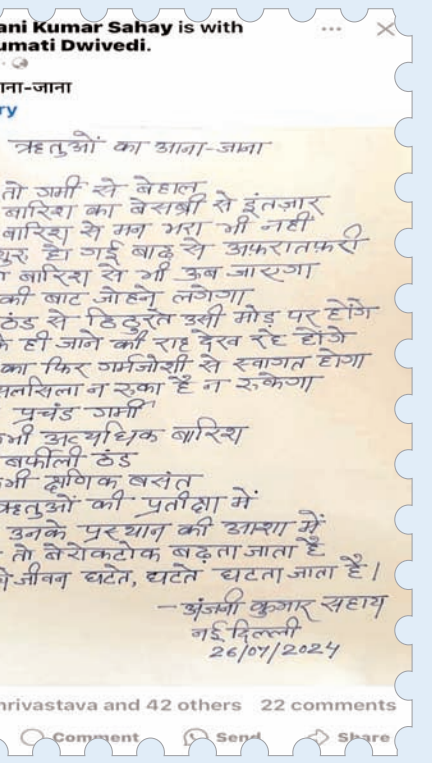 ani Kumar Sahay is with
umati Dwivedi.
ाना-जाना
ry
ऋतुओं का आना-जाना
तो गर्मी से बेहाल
बारिश का बेसब्री से इंतज़ार
बारिश से मन भरा भी नहीं
शुरू हो गई बाढ़ से अफ़रातफ़री
बारिश से भी ऊब जाएगा
की बाट जोहने लगेगा
ठंड से ठिठुरते उसी मोड़ पर होंगे
के ही जाने की राह देख रहे होंगे
का फिर गर्मजोशी से स्वागत होगा
सिलसिला न रुका है न रुकेगा
प्रचंड गर्मी
भी अत्यधिक बारिश
बर्फीली ठंड
भी क्षणिक बसंत
ऋतुओं की प्रतीक्षा में
उनके प्रस्थान की आशा में
तो बेरोकटोक बढ़ता जाता है
जीवन घटते, घटते घटता जाता है।
-अंजनी कुमार सहाय
नई दिल्ली
26/07/2024
hrivastava and 42 others 22 comments
Comment Send Share